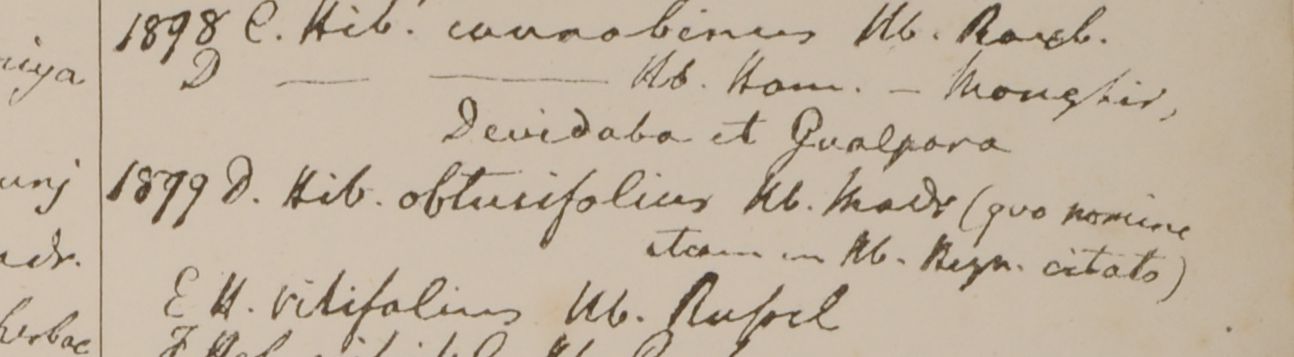 1898 C. Hib. cannabinus Hb. Roxb.
niya
D — — Hb. Ham. – Monghir,
Devidaba et Gualpara
unj
1899 D. Hib. obtusifolius Hb. Madr (quo nomine
adr.
etiam in Hb. Heyn. citato)
E H. vitifolius Hb. Russel
herbac